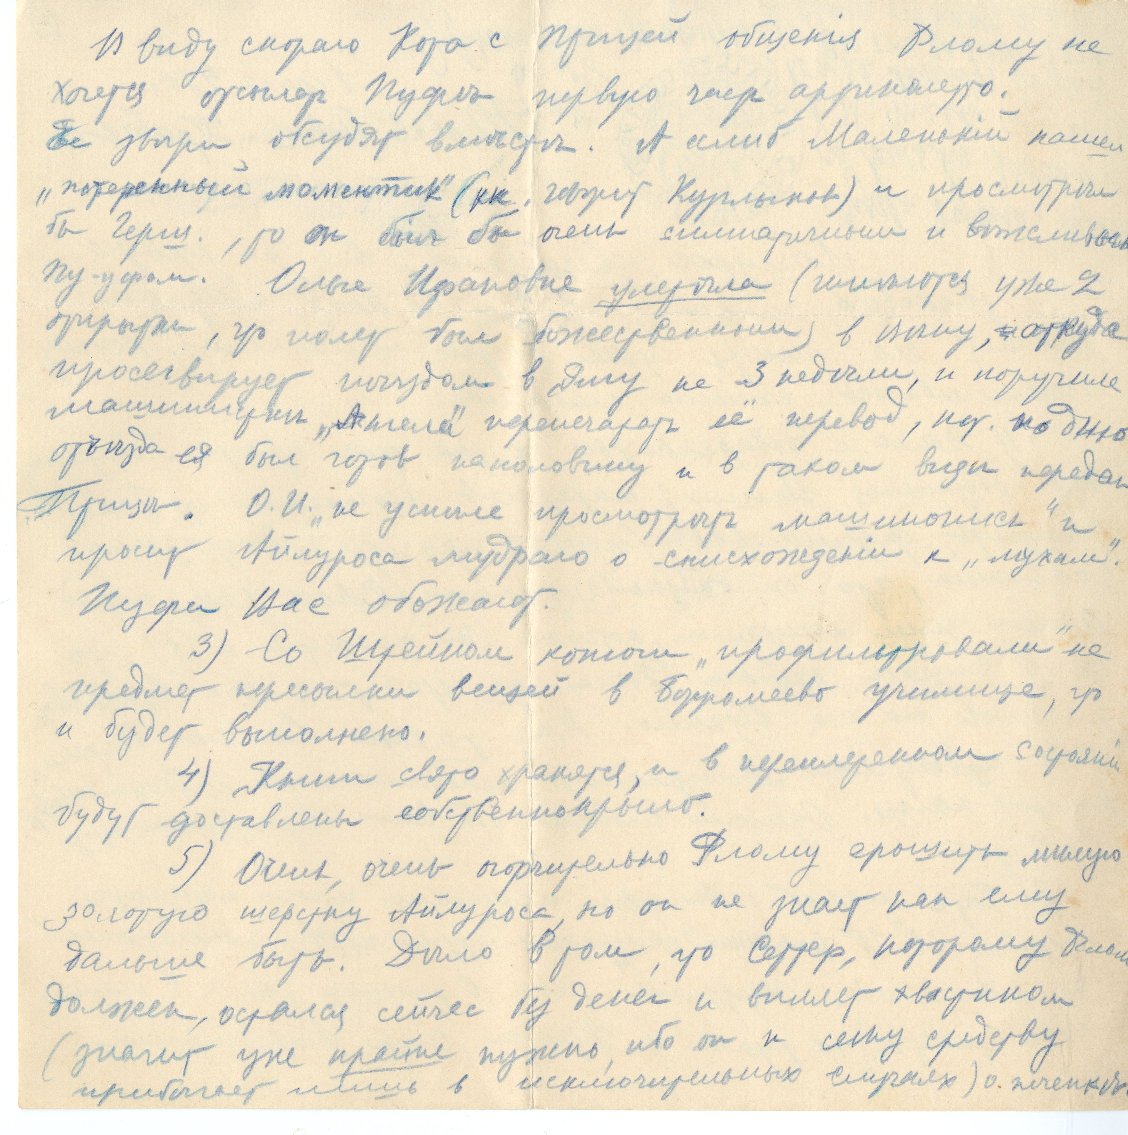 В виду скораго Кота с Птицей общенія Фламу не
хочется отсылать Пуфѣ первую часть оригинала.
Все звѣри обсудят вмѣстѣ. А если б Маленькій нашел
„потерянный моментик" ( говорит Курлыков) и просмотрѣл
бы Герш., то он был бы очень симпатичным и вѣжливым
Пу-уфом. Ольга Ивановна улетѣла (имѣются уже 2
открытки, что полет был божественным) в Вѣну, откуда
прослѣдует поѣздом в Яму на 3 недѣли, и поручила
машинисткѣ „Ангела" перепечатать её перевод, кот. ко дню
отъѣзда ея был готов наполовину и в таком видѣ передан
Птицѣ. О.И. „не успѣла просмотрѣть машинопись" и
просит Айлуроса мудраго о снисхожденіи к „мухам".
Пуфы Вас обожают.
3) Со Штейном котом „профильтровали" на
предмет пересылки вещей в Борромеево училище, что
и будет выполнено.
4) Книги свято хранятся, и в переплетенном состояніи
будут доставлены собственнокрыло.
5) Очень, очень огорчительно Фламу ерошить милую
золотую шерстку Айлуроса, но он не знает как ему
дальше быть. Дѣло в том, что Сеттер, которому Флам
должен, остался сейчас без денег и виляет хвостиком
(значит уже крайне нужно, ибо он к сему средству
прибѣгает лишь в исключительных случаях) о.